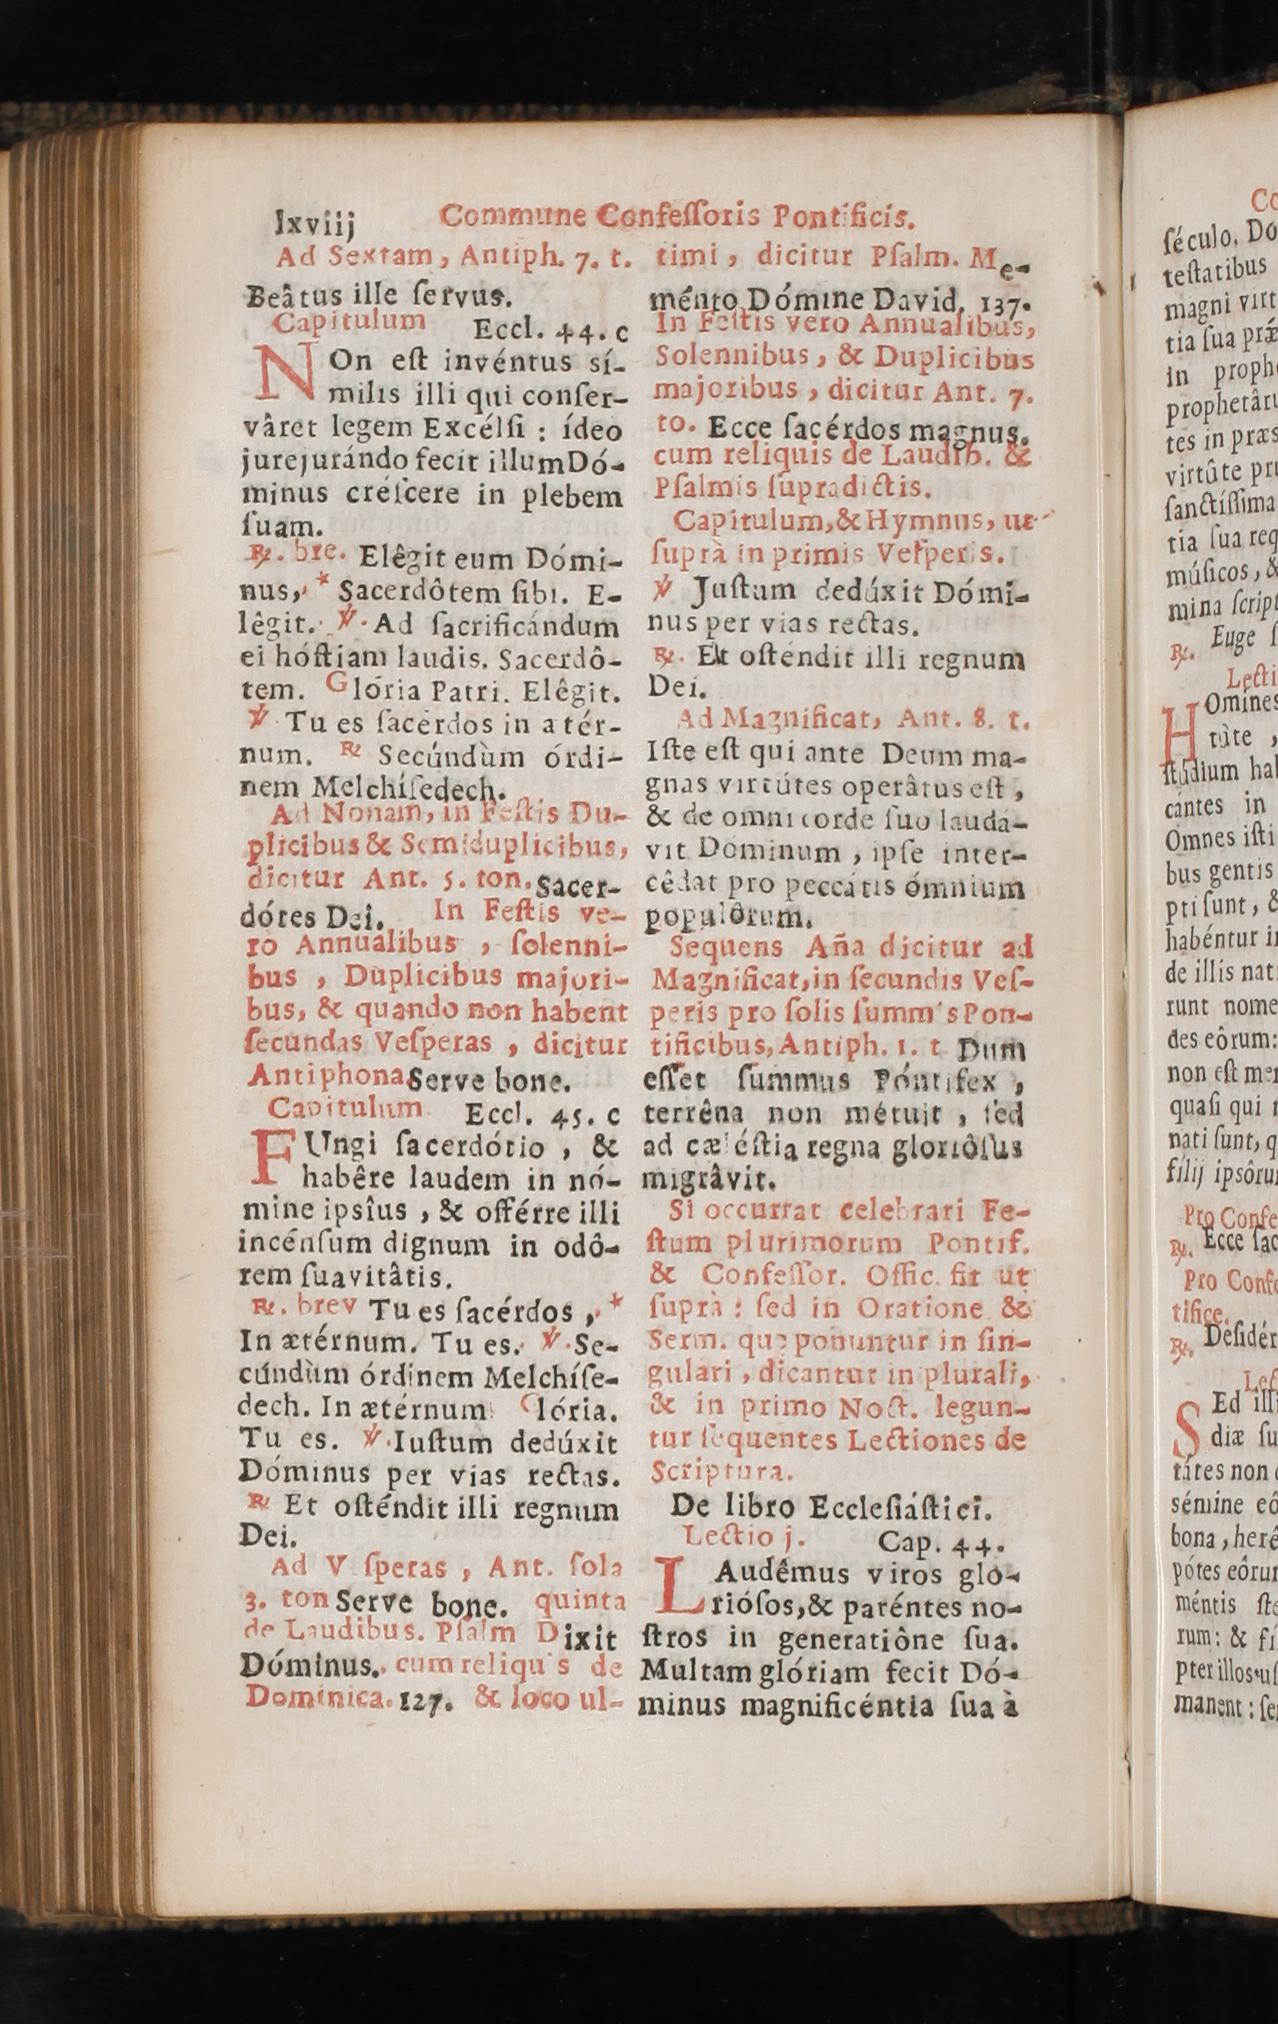 lxviij
Commune Confeſſoris Pontificis.
Ad Sextam, Antiph. 7. t.
Beâtus ille ſervus.
Capitulum Eccl. 44. c
NOn eſt invéntus sí-
milis illi qui conſer-
vâret legem Excélſi : ídeo
jurejurándo fecit illum Dó-
minus créſcere in plebem
ſuam.
℟. bre. Elêgit eum Dómi-
nus, * Sacerdôtem ſibi. E-
lêgit. ℣. Ad ſacrificándum
ei hóſtiam laudis. Sacerdô-
tem. Glória Patri. Elêgit.
℣ Tu es ſacérdos in atér-
num. ℟ Secúndùm órdi-
nem Melchíſedech.
Ad Nonam, in Feſtis Du-
plicibus & Semiduplicibus,
dicitur Ant. 5. ton. Sacer-
dótes Dei. In Feſtis ve-
ro Annualibus , ſolenni-
bus , Duplicibus majori-
bus, & quando non habent
ſecundas Veſperas , dicitur
Antiphona Serve bone.
Capitulum Eccl. 45. c
FUngi ſacerdótio , &
habêre laudem in nó-
mine ipsîus , & offérre illi
incénſum dignum in odô-
rem ſuavitâtis.
℟. brev Tu es ſacérdos , *
In ætérnum. Tu es. ℣. Se-
cúndùm órdinem Melchíſe-
dech. In ætérnum Glória.
Tu es. ℣. Iuſtum dedúxit
Dóminus per vias rectas.
℟ Et oſténdit illi regnum
Dei.
Ad V ſperas , Ant. ſola
3. ton Serve bone. quinta
de Laudibus. Pſalm Dixit
Dóminus. cum reliquis de
Dominica. 127. & loco ul-
timi , dicitur Pſalm. Me-
ménto Dómine David, 137.
In Feſtis vero Annualibus,
Solennibus , & Duplicibus
majoribus , dicitur Ant. 7.
to. Ecce ſacérdos magnus.
cum reliquis de Laudib. &
Pſalmis ſupradictis.
Capitulum, & Hymnus, ut
ſuprà in primis Veſperis.
℣ Juſtum dedúxit Dómi-
nus per vias rectas.
℟. Et oſténdit illi regnum
Dei.
Ad Magnificat, Ant. 8. t.
Iſte eſt qui ante Deum ma-
gnas virtútes operâtus eſt ,
& de omni corde ſuo laudá-
vit Dominum , ipſe inter-
cêdat pro peccátis ómnium
populôrum.
Sequens Aña dicitur ad
Magnificat, in ſecundis Veſ-
peris pro ſolis ſummis Pon-
tificibus, Antiph. 1. t Dum
eſſet ſummus Póntifex ,
terrêna non métuit , ſed
ad cæléſtia regna gloriôſus
migrâvit.
Si occurrat celebrari Fe-
ſtum plurimorum Pontif.
& Confeſſor. Offic. fit ut
ſuprà : ſed in Oratione &
Serm. quæ ponuntur in ſin-
gulari , dicantur in plurali,
& in primo Noct. legun-
tur ſequentes Lectiones de
Scriptura.
De libro Eccleſiáſtici.
Lectio j. Cap. 44.
LAudêmus viros glo-
rióſos, & paréntes no-
ſtros in generatiône ſua.
Multam glóriam fecit Dó-
minus magnificéntia ſua à
ſéculo. Do
teſtatibus
magni virt
tia ſua præ
in proph
prophetâru
tes in præs
virtûte pru
ſanctíſſima
tia ſua req
múſicos, &
mina ſcript
℟. Euge ſ
Lecti
HOmines
tùte ,
ſtúdium hab
cántes in
Omnes iſti
bus gentis
pti ſunt, &
habéntur in
de illis nat
runt nome
des eôrum:
non eſt mem
quaſi qui n
nati ſunt, q
fílij ipsôru
Pro Confe
℟. Ecce ſac
Pro Confe
tifice.
℟. Deſidér
Lec
SEd illi
diæ ſu
tátes non
sémine eô
bona, heré
pótes eôrum
méntis ſte
rum: & fí
pter illos uſ
manent : ſe